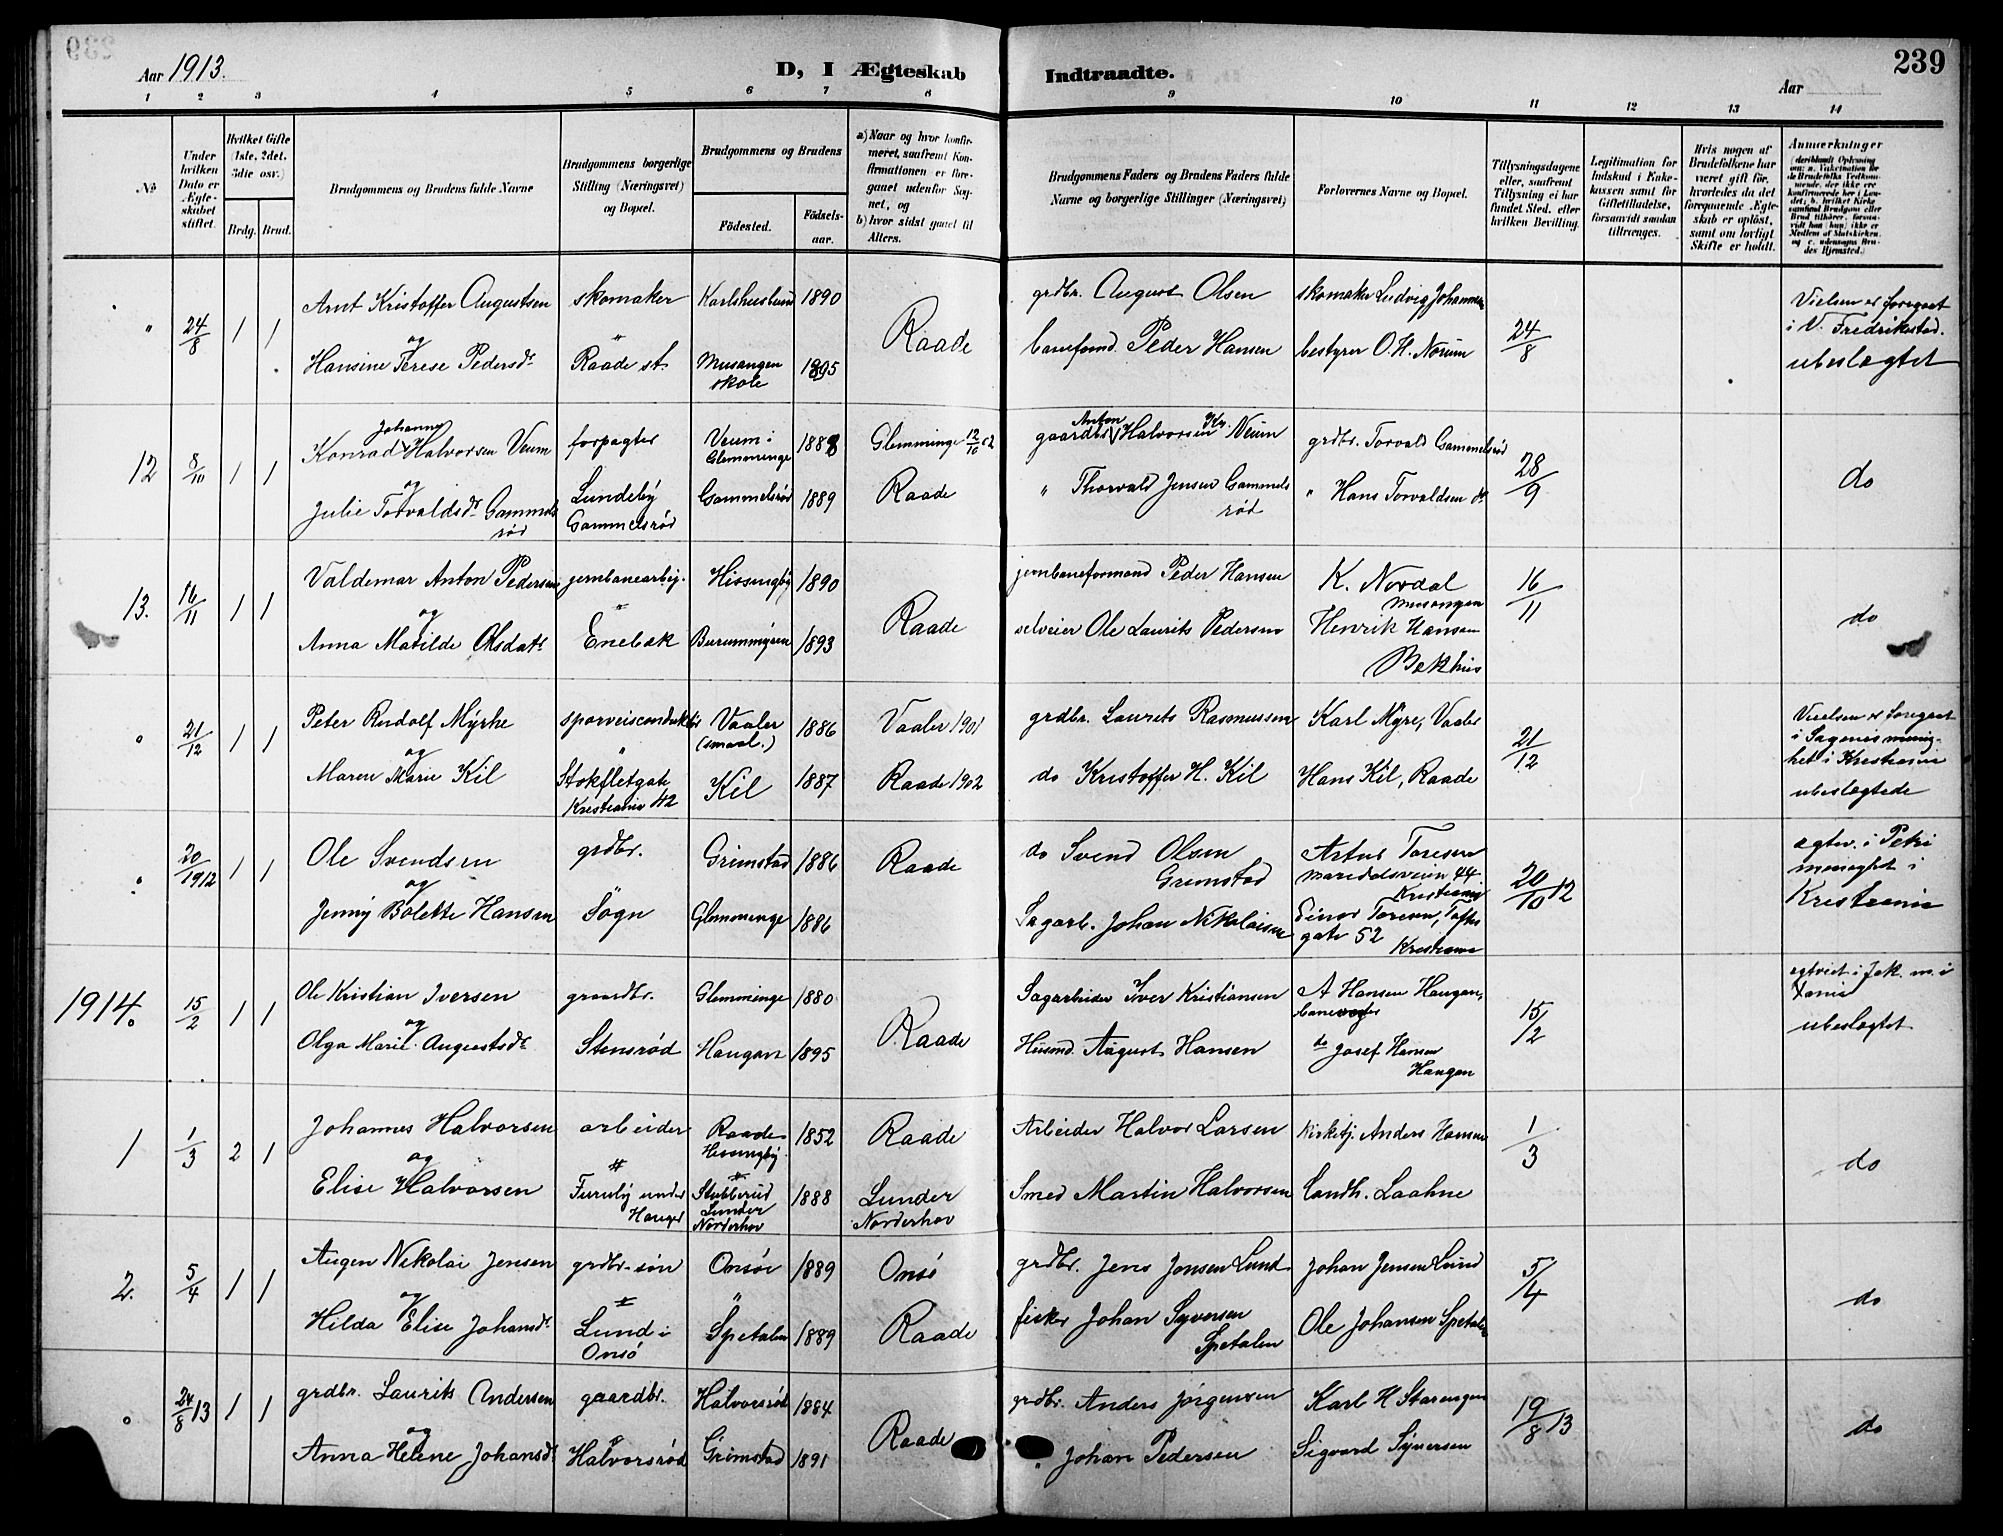 239
Aar 1913.
D, I Ægteskab Indtraadte.
Aar
1 2 3 4 5 6 7 8 9 10 11 12 13 14
№
Under hvilken Dato er Ægteskabet stiftet.
Hvilket Gifte (1ste, 2det, 3die osv.)
Brdg. Brud.
Brudgommens og Brudens fulde Navne
Brudgommens borgerlige Stilling (Næringsvei) og Bopæl.
Brudgommens og Brudens
Födested.
Födselsaar.
a) Naar og hvor konfirmeret, saafremt Konfirmationen er foregaaet udenfor Sognet, og
b) hvor sidst gaaet til Alters.
Brudgommens Faders og Brudens Faders fulde Navne og borgerlige Stillinger (Næringsvei)
Forlovernes Navne og Bopæl.
Tillysningsdagene eller, saafremt Tillysning ei har fundet Sted, efter hvilken Bevilling.
Legitimation for Indskud i Enkekassen samt for Giftetilladelse, forsaavidt saadan tiltrænges.
Hvis nogen af Brudefolkene har været gift för, hvorledes da det foregaaende Ægteskab er oplöst, samt om lovligt Skifte er holdt.
Anmærkninger
" 24/8 1 1 Arnt Kristoffer Augustsen skomaker Karlshuslund 1890 Raade grdbr. August Olsen skomaker Ludvig Johannsen 24/8 Vielsen er foregaat i V. Fredrikstad. ubeslægtet
og
Hansine Terese Pedersdr Raade st. Musangen skole 1895 baneformd. Peder Hansen bestyrer O. H. Norum
12 8/10 1 1 Konrad Johannes Halvorsen Veum forpagter Veum i Glemminge 1888 Glemminge 12/10 02 gaardbr. Anton Halvorsen Veum grdbr. Torvald Gammelsrød 28/9 do
og
Julie Torvaldsdr Gammelsrød Lundeby Gammelsrød Gammelsrød 1889 Raade " Thorvald Jensen Gammelsrød " Hans Torvaldsen do
13. 16/11 1 1 Valdemar Anton Pedersen jernbanearbej. Hissingby 1890 Raade jernbaneformand Peder Hansen K. Nordal Musangen 16/11 do
og
Anna Matilde Olsdatr Enebak Burummyren 1893 selveier Ole Laurits Pedersen Henrik Hansen Bakhus
" 21/12 1 1 Peter Rudolf Myrhe sporveisconduktör Vaaler (Smaal.) 1886 Vaaler 1901 grdbr. Laurits Rasmussen Karl Myre, Vaaler 21/12 Vielsen er foregaat i Sagenes menighet i Kristiania ubeslegtede
og
Maren Marie Kil Stokfletgate Kristiania 42 Kil 1887 Raade 1902 do Kristoffer H. Kil Hans Kil, Raade
" 20/1912 1 1 Ole Svendsen grdbr. Grimstad 1886 Raade do Svend Olsen Grimstad Artur Toresen Maridalsveien 44 Kristiania 20/10 12 egtev. i Petri menighet i Kristiania
og
Jenny Bolette Hansen Sogn Glemminge 1886 Sagarb. Johan Nikolaisen Einar Toresen, Toftes gate 52 Kristiania
1914. 15/2 1 1 Ole Kristian Iversen gaardbr. Glemminge 1880 Raade Sagarbeider Iver Kristiansen A Hansen Haugen, banevogter 15/2 egtviet i Jak. m. i Xania ubeslegtet
og
Olga Marie Augustsdr Stensrød Haugen 1895 Husmd. August Hansen do Josef Hansen Haugen
1 1/3 2 1 Johannes Halvorsen arbeider Raade Hissingby 1852 Raade Arbeider Halvor Larsen Kirketj. Anders Hansen 1/3 do
og
Elise Halvorsen Furuly under Hauger Stubberud Lunder Norderhov 1888 Lunder Norderhov Smed Martin Halvorsen Landh. Laahne
2. 5/4 1 1 Augen Nikolai Jensen grdbr-søn Onsö 1889 Onsö grdbr. Jens Jonsen Lund Johan Jensen Lund 5/4 do
og
Hilda Elise Johansdr Lund i Onsö Spetalen 1889 Raade fisker Johan Syversen Spetalen Ole Johansen Spetalen
" 24/8 13 1 1 grdbr. Laurits Andersen gaardbr. Halvorsrød 1884 Raade grdbr. Anders Jörgensen Karl H Starengen 19/8 13 do
og
Anna Helene Johansdr Halvorsrød Grimstad 1891 " Johan Pedersen Sigvard Syversen